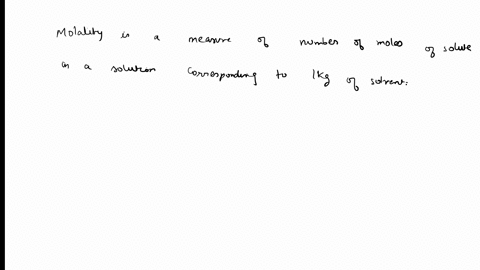 Molality is a measure of number of moles of solute
in a solution corresponding to 1kg of solvent.